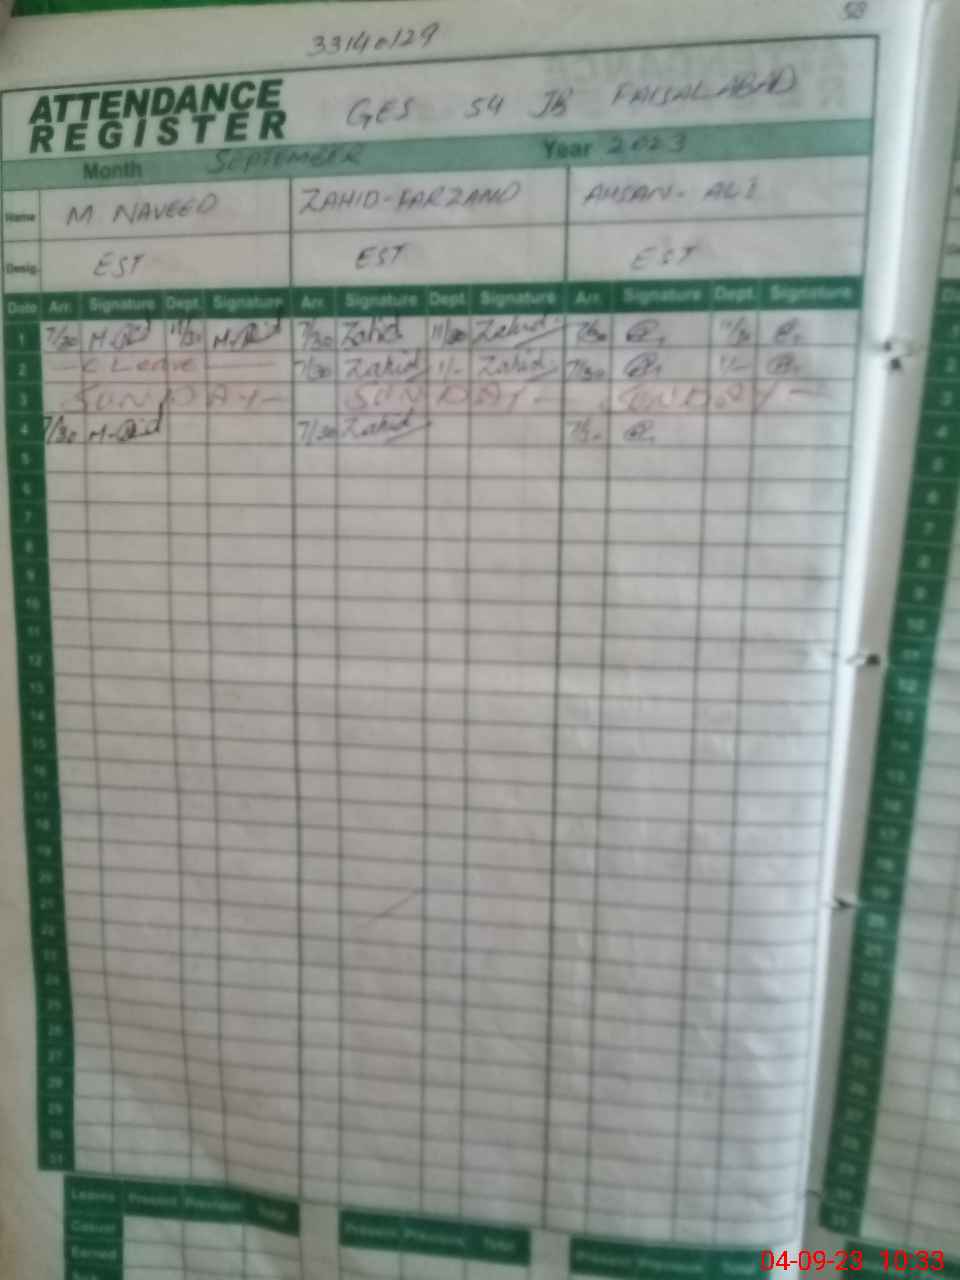 58
33140129
ATTENDANCE REGISTER
GES 54 JB FAISALABAD
Month SEPTEMBER Year 2023
Name M NAVEED ZAHID-FARZAND AHSAN-ALI
Desig. EST EST EST
Date Arr. Signature Dept. Signature Arr. Signature Dept. Signature Arr. Signature Dept. Signature
1 7/30 11/30 7/30 Zahid 11/30 Zahid 7/30 11/30
2 C Leave 7/30 Zahid 11/- Zahid 7/30 11/-
3 SUNDAY- SUNDAY- SUNDAY-
4 7/30 7/30 Zahid
5
6
7
8
9
10
11
12
13
14
15
16
17
18
19
20
21
22
23
24
25
26
27
28
29
30
31
Leaves Present Previous Total Present Previous Total Present Previous
Casual
Earned
04-09-23 10:33